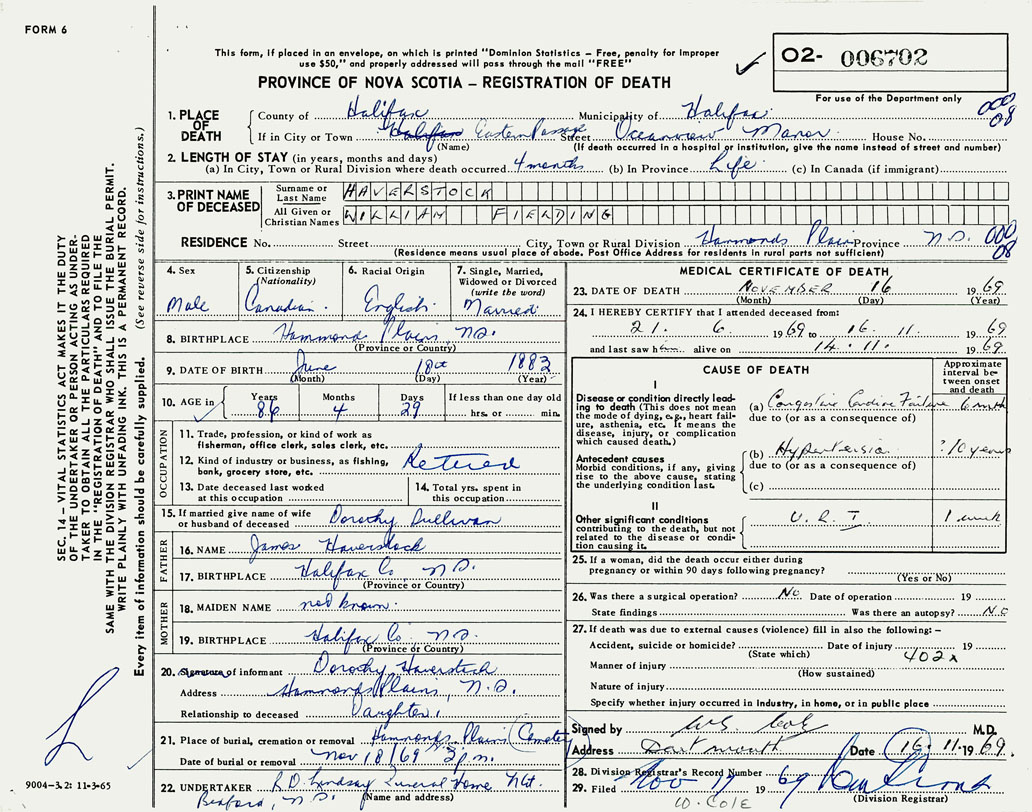 FORM 6
This form, if placed in an envelope, on which is printed "Dominion Statistics – Free, penalty for improper
use $50," and properly addressed will pass through the mail "FREE"
PROVINCE OF NOVA SCOTIA – REGISTRATION OF DEATH
02- 006702
For use of the Department only
000
08
1. PLACE OF DEATH
County of Halifax Municipality of Halifax
If in City or Town Halifax Eastern Passage Street Oceanview Manor House No.
(Name) (If death occurred in a hospital or institution, give the name instead of street and number)
2. LENGTH OF STAY (in years, months and days)
(a) In City, Town or Rural Division where death occurred 4 months (b) In Province Life (c) In Canada (if immigrant)
3. PRINT NAME OF DECEASED
Surname or Last Name HAVERSTOCK
All Given or Christian Names WILLIAM FIELDING
RESIDENCE No. Street City, Town or Rural Division Hammonds Plain Province N.S. 000
08
(Residence means usual place of abode. Post Office Address for residents in rural parts not sufficient)
4. Sex
Male
5. Citizenship
(Nationality)
Canadian
6. Racial Origin
English
7. Single, Married,
Widowed or Divorced
(write the word)
Married
8. BIRTHPLACE Hammond Plains, N.S.
(Province or Country)
9. DATE OF BIRTH June 18 1883
(Month) (Day) (Year)
10. AGE in Years Months Days If less than one day old
86 4 29 hrs. or min.
OCCUPATION
11. Trade, profession, or kind of work as
fisherman, office clerk, sales clerk, etc.
12. Kind of industry or business, as fishing,
bank, grocery store, etc. Retired
13. Date deceased last worked
at this occupation
14. Total yrs. spent in
this occupation
15. If married give name of wife
or husband of deceased Dorothy Sullivan
FATHER
16. NAME James Haverstock
17. BIRTHPLACE Halifax Co N.S.
(Province or Country)
MOTHER
18. MAIDEN NAME not known
19. BIRTHPLACE Halifax Co. N.S.
(Province or Country)
20. Signature of informant Dorothy Haverstock
Address Hammonds Plains, N.S.
Relationship to deceased Daughter
21. Place of burial, cremation or removal Hammonds Plain Cemetery
Date of burial or removal Nov 18/69 2 p.m.
22. UNDERTAKER R D Lindsay Funeral Home
Bedford, N.S. (Name and address)
MEDICAL CERTIFICATE OF DEATH
23. DATE OF DEATH NOVEMBER 16 1969
(Month) (Day) (Year)
24. I HEREBY CERTIFY that I attended deceased from:
21. 6. 1969 to 16. 11. 1969
and last saw him alive on 14. 11. 1969
CAUSE OF DEATH
Approximate interval between onset and death
I
Disease or condition directly leading to death (This does not mean the mode of dying, e.g., heart failure, asthenia, etc. It means the disease, injury, or complication which caused death.)
(a) Congestive Cardiac Failure 6 mth
due to (or as a consequence of)
Antecedent causes
Morbid conditions, if any, giving rise to the above cause, stating the underlying condition last.
(b) Hypertension ?10 years
due to (or as a consequence of)
(c)
II
Other significant conditions
contributing to the death, but not related to the disease or condition causing it.
U.R.I 1 week
25. If a woman, did the death occur either during
pregnancy or within 90 days following pregnancy?
(Yes or No)
26. Was there a surgical operation? No. Date of operation 19
State findings Was there an autopsy? No
27. If death was due to external causes (violence) fill in also the following: –
Accident, suicide or homicide? Date of injury 19
(State which) 402x
Manner of injury
(How sustained)
Nature of injury
Specify whether injury occurred in industry, in home, or in public place
Signed by W S Cole M.D.
Address Dartmouth Date 16.11.1969.
28. Division Registrar's Record Number
29. Filed Nov 17 1969
(Division Registrar)
W. COLE
SEC. 14 – VITAL STATISTICS ACT MAKES IT THE DUTY
OF THE UNDERTAKER OR PERSON ACTING AS UNDER-
TAKER TO OBTAIN ALL THE PARTICULARS REQUIRED
IN THE "REGISTRATION OF DEATH" AND TO FILE THE
SAME WITH THE DIVISION REGISTRAR WHO SHALL ISSUE THE BURIAL PERMIT.
WRITE PLAINLY WITH UNFADING INK. THIS IS A PERMANENT RECORD.
Every item of information should be carefully supplied. (See reverse side for instructions.)
9004-3.2: 11-3-65